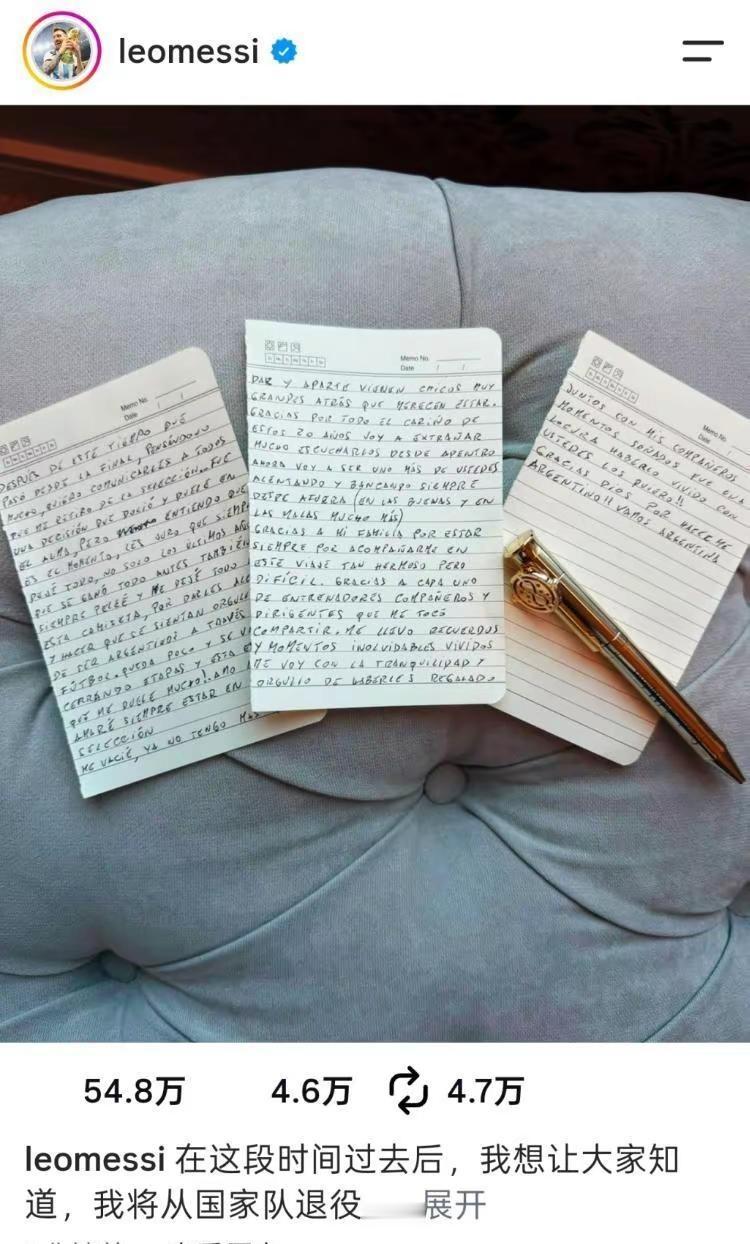 leomessi
Memo No.
Date / /
DESPUÉS DE ESTE TIEMPO QUE
PASÓ DESDE LA FINAL, PENSÁNDOLO
MUCHO, QUIERO COMUNICARLES A TODOS
QUE ME RETIRO DE LA SELECCIÓN. FUE
UNA DECISIÓN QUE DOLIÓ Y DUELE EN
EL ALMA, PERO ENTIENDO QUE
ES EL MOMENTO, LES JURO QUE SIEMPRE
DEJÉ TODO, NO SOLO LOS ÚLTIMOS AÑOS
QUE SE GANÓ TODO ANTES TAMBIÉN
SIEMPRE PELEÉ Y ME DEJÉ TODO
ESTA CAMISETA, POR DARLES
Y HACER QUE SE SIENTAN
DE SER ARGENTINOS A TRAVÉS
FÚTBOL. QUEDA POCO Y SE
CERRANDO ETAPAS Y ESTA
QUE ME DUELE MUCHO! AMO
AMARÉ SIEMPRE ESTAR EN
SELECCIÓN
ME VACIÉ, YA NO TENGO
Memo No.
Date / /
DAR Y APARTE VIENEN CHICOS MUY
GRANDES ATRÁS QUE MERECEN ESTAR.
GRACIAS POR TODO EL CARIÑO DE
ESTOS 20 AÑOS VOY A EXTRAÑAR
MUCHO ESCUCHARLOS DESDE ADENTRO
AHORA VOY A SER UNO MÁS DE USTEDES
ALENTANDO Y BANCANDO SIEMPRE
DESDE AFUERA (EN LAS BUENAS Y EN
LAS MALAS MUCHO MÁS)
GRACIAS A MI FAMILIA POR ESTAR
SIEMPRE POR ACOMPAÑARME EN
ESTE VIAJE TAN HERMOSO PERO
DIFÍCIL. GRACIAS A CADA UNO
DE ENTRENADORES COMPAÑEROS Y
DIRIGENTES QUE ME TOCÓ
COMPARTIR, ME LLEVO RECUERDOS
Y MOMENTOS INOLVIDABLES VIVIDOS
ME VOY CON LA TRANQUILIDAD Y
ORGULLO DE HABERLES REGALADO
Memo No.
Date
JUNTOS CON MIS COMPAÑEROS
MOMENTOS SOÑADOS FUE UNA
LOCURA HABERLO VIVIDO CON
USTEDES LOS QUIERO!!
GRACIAS DIOS POR HACERME
ARGENTINO!! VAMOS ARGENTINA
54.8万 4.6万 4.7万
leomessi 在这段时间过去后，我想让大家知
道，我将从国家队退役 展开